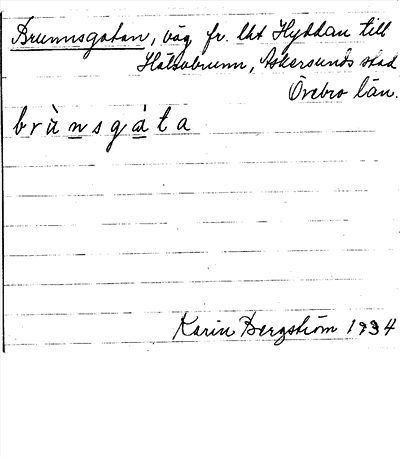 Brunnsgatan, väg fr. lht Hyttan till
Hälsobrunn, Askersunds stad
Örebro län.
brùnsgàta
Karin Bergström 1934